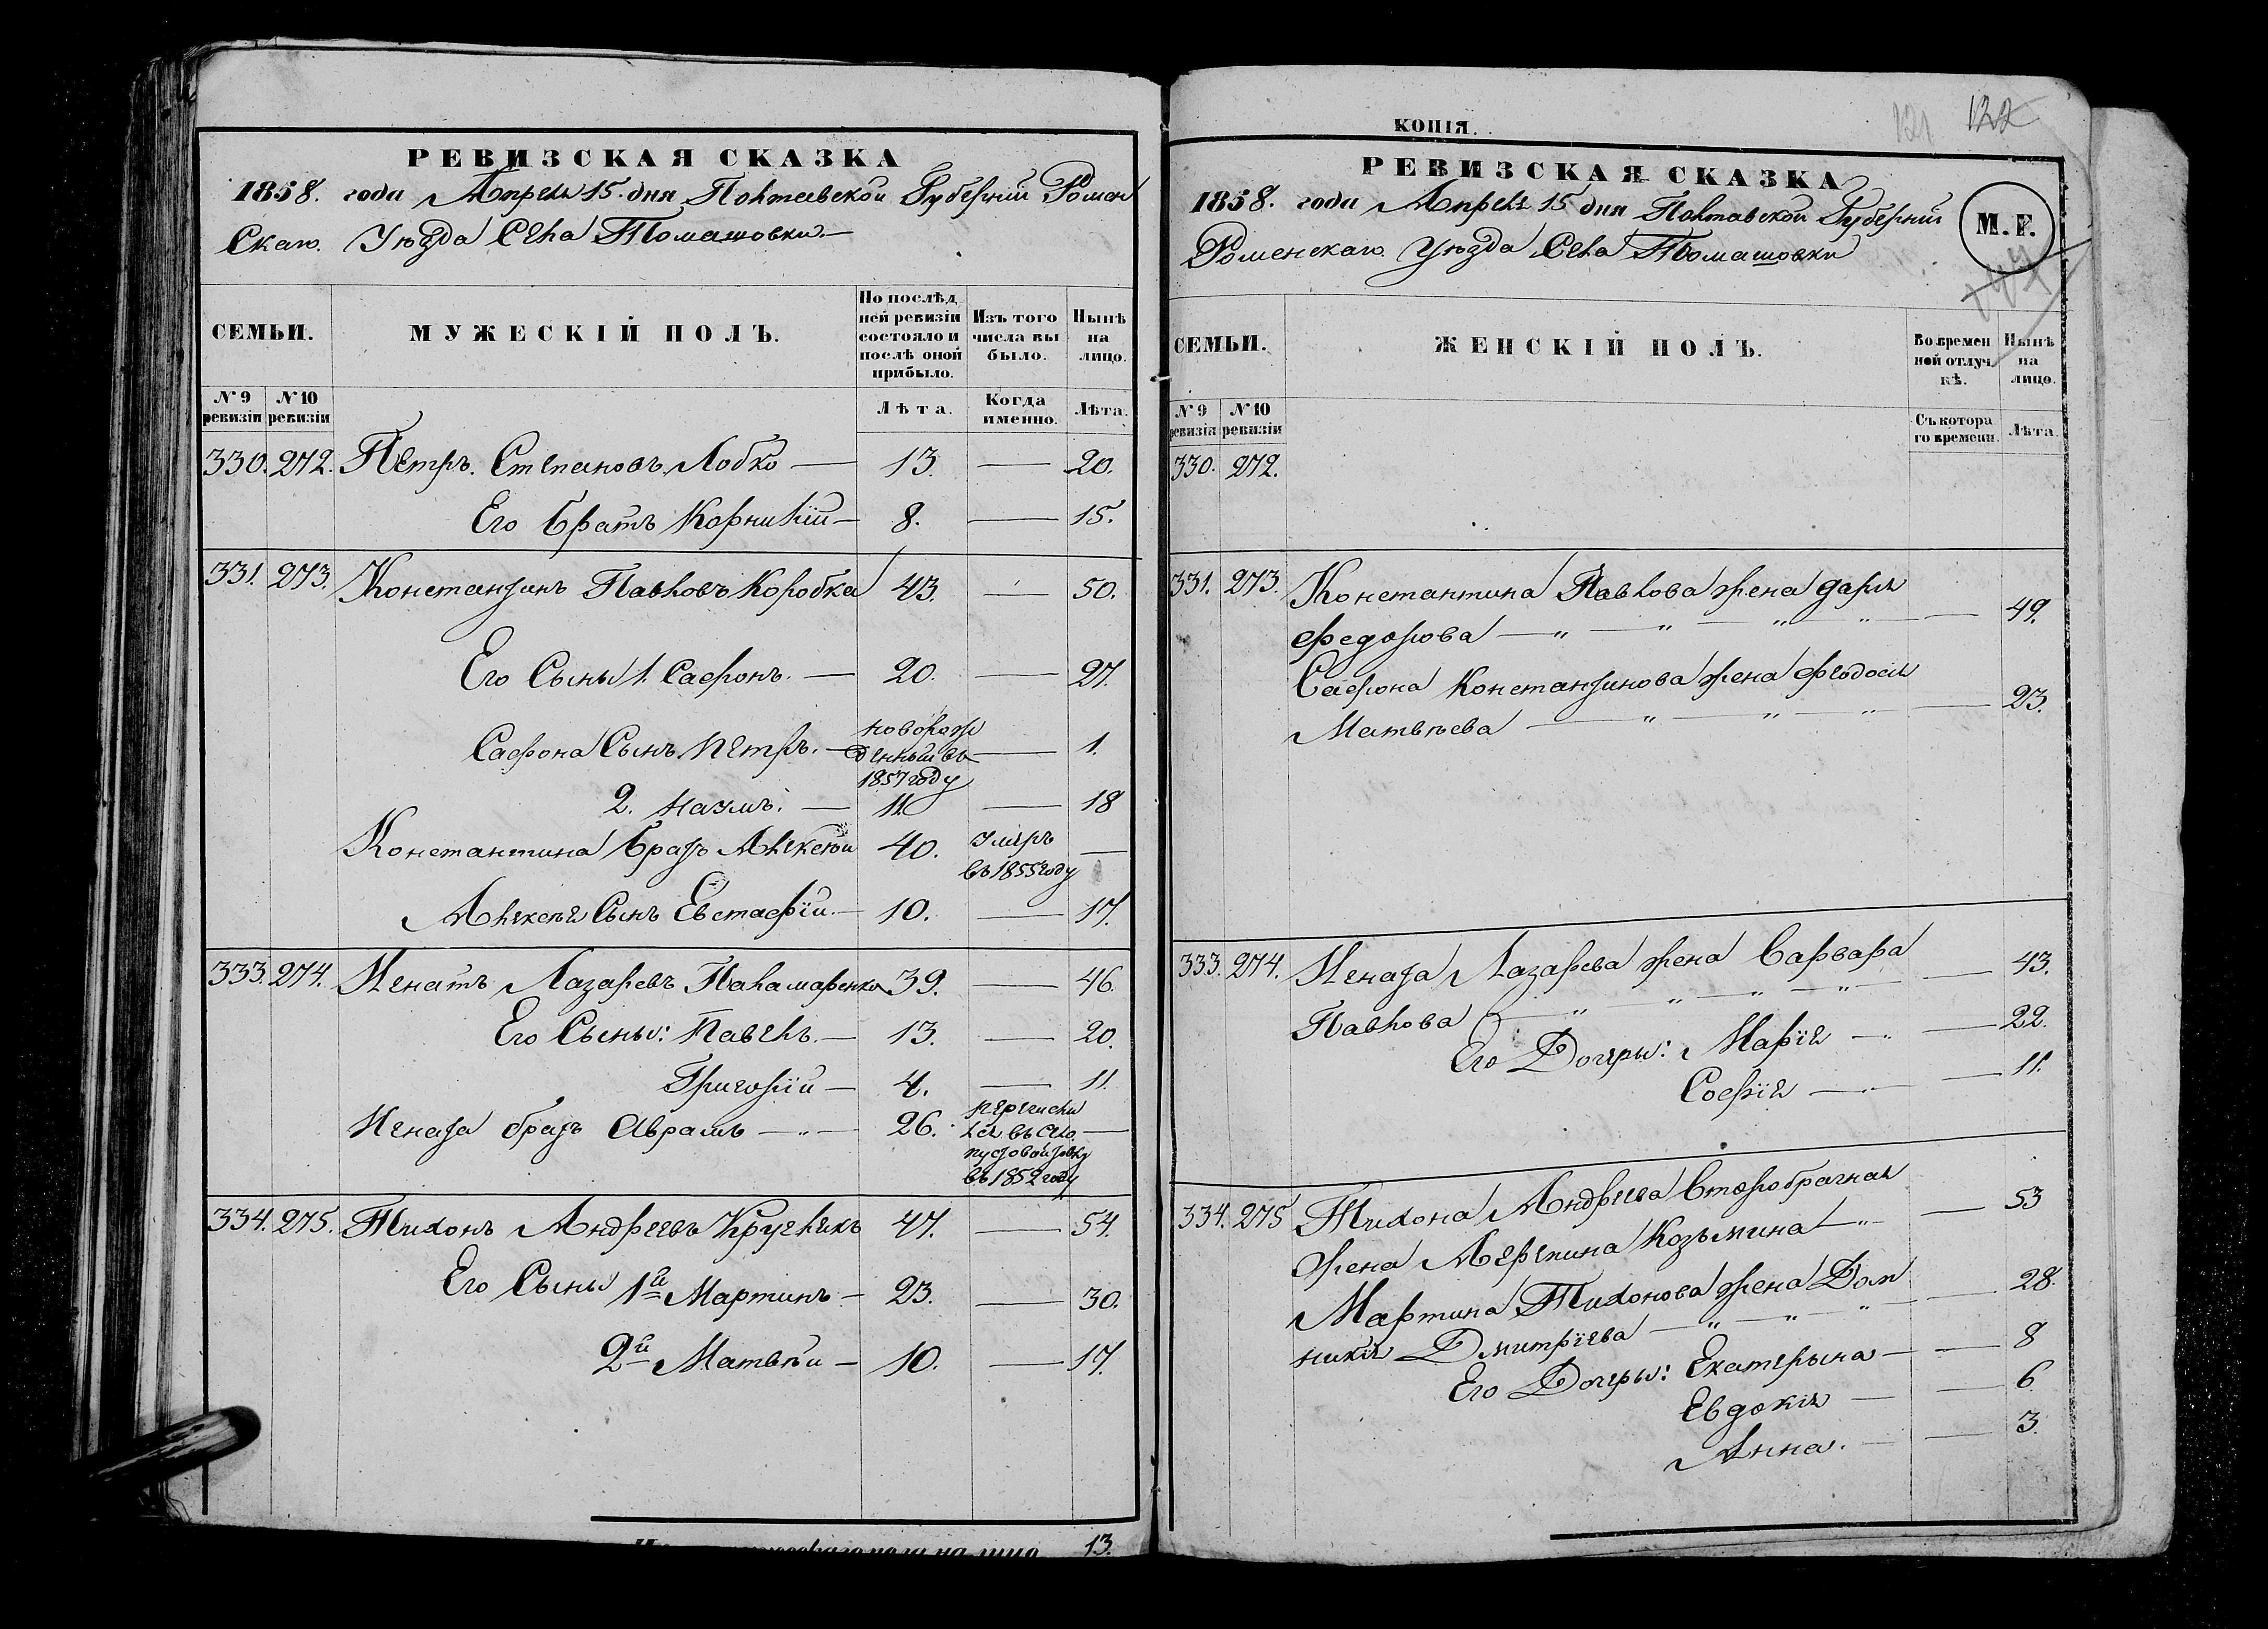 РЕВИЗСКАЯ СКАЗКА
1858. года Апреля 15. дня Полтавской Губерній Ромен
Скаго. Уезда Села Томашовки.
СЕМЬИ.
МУЖЕСКІЙ ПОЛЪ.
По послѣд
ней ревизіи
состояло и
послѣ оной
прибыло.
Изъ того
числа вы
было.
Нынѣ
на
лицо.
№ 9
ревизіи
№ 10
ревизіи
Лѣта.
Когда
именно.
Лѣта.
330. 272. Петръ. Степановъ Лобко — 13. — 20.
Его братъ Корнилій — 8. — 15.
331. 273. Константинъ Павловъ Коробка 43. — 50.
Его Сыны 1. Сафронъ. — 20. — 27.
Сафрона Сынъ Петръ. — новорож
денный въ — 1.
1857 году
2. Наумъ. — 11. — 18
Константина братъ Алексей 40. Умеръ —
въ 1855 году
Алексея Сынъ Евстафій. — 10. — 17.
333. 274. Игнатъ Лазаревъ Паламаренко 39. — 46.
Его Сыны: Павелъ. — 13. — 20.
Григорій — 4. — 11.
Игната братъ Аврамъ — 26. перечисли
лся въ
въ 1852 году
334. 275. Тихонъ Андреевъ Кругликъ 47. — 54.
Его Сыны 1й Мартинъ — 23. — 30.
2й Матвѣй — 10. — 17.
13.
КОПІЯ.
121 122
РЕВИЗСКАЯ СКАЗКА
1858. года Апреля 15 дня Полтавской Губерній
Роменскаго. Уезда Села Томашовки
М. Г.
СЕМЬИ.
ЖЕНСКІЙ ПОЛЪ.
Во времен
ной отлуч
кѣ.
Нынѣ
на
лицо.
№ 9
ревизіи
№ 10
ревизіи
Съ котора
го времени.
Лѣта.
330. 272.
331. 273. Константина Павлова жена Дарья
Федорова — " — " — " — " — 49.
Сафрона Константинова жена Феодосія
Матвѣева — " — " — " — 23.
333. 274. Игната Лазарева жена Варвара
Павлова — " — " — " — " — 43.
Его Дочеры: Марія — 22.
Софія — 11.
334. 275 Тихона Андреева Второбрачная
жена Агрепина Козьмина — " — 53
Мартина Тихонова жена Дом
никія Дмитріева — " — " — " — 28.
Его Дочеры: Екатерына — 8
Евдокія — 6
Анна. — 3.